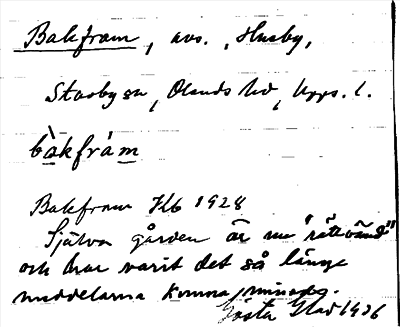 Bakfram, avs., Husby,
Stavby sn, Olands hd, Upps. l.
bàkfrám
Bakfram Hb 1928
Själva gården är nu "rättvänd"
och har varit det så länge
meddelarna kunna minnas.
Gösta Glad 1936